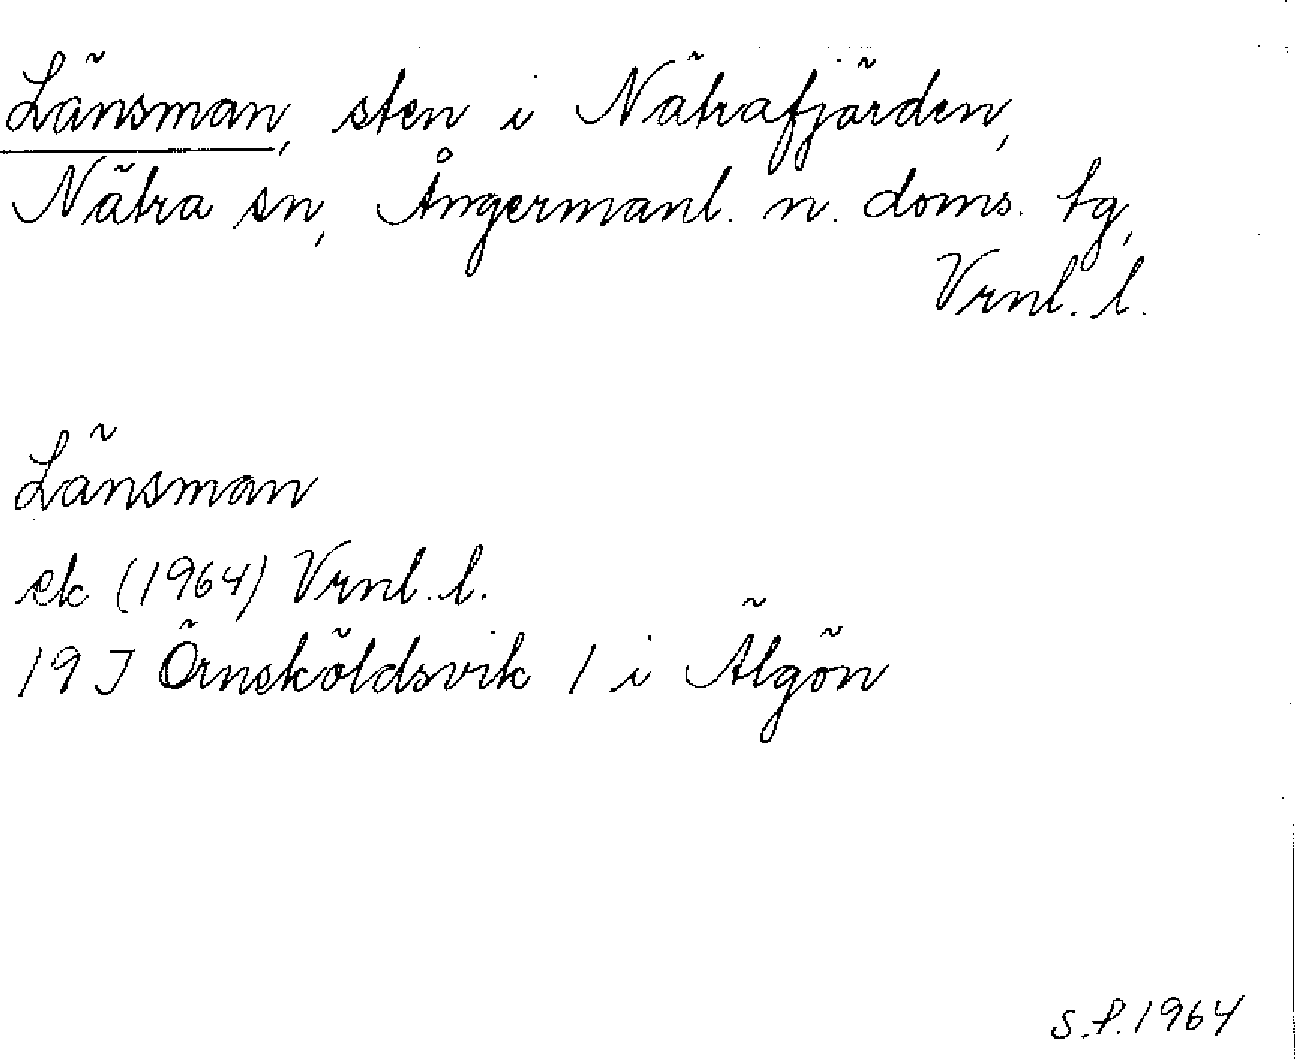 Länsman, sten i Nätrafjärden,
Nätra sn, Ångermanl. n. doms. tg,
Vrnl. l.
Länsman
ek (1964) Vrnl. l.
19 J Örnsköldsvik 1 i Älgön
S.P. 1964